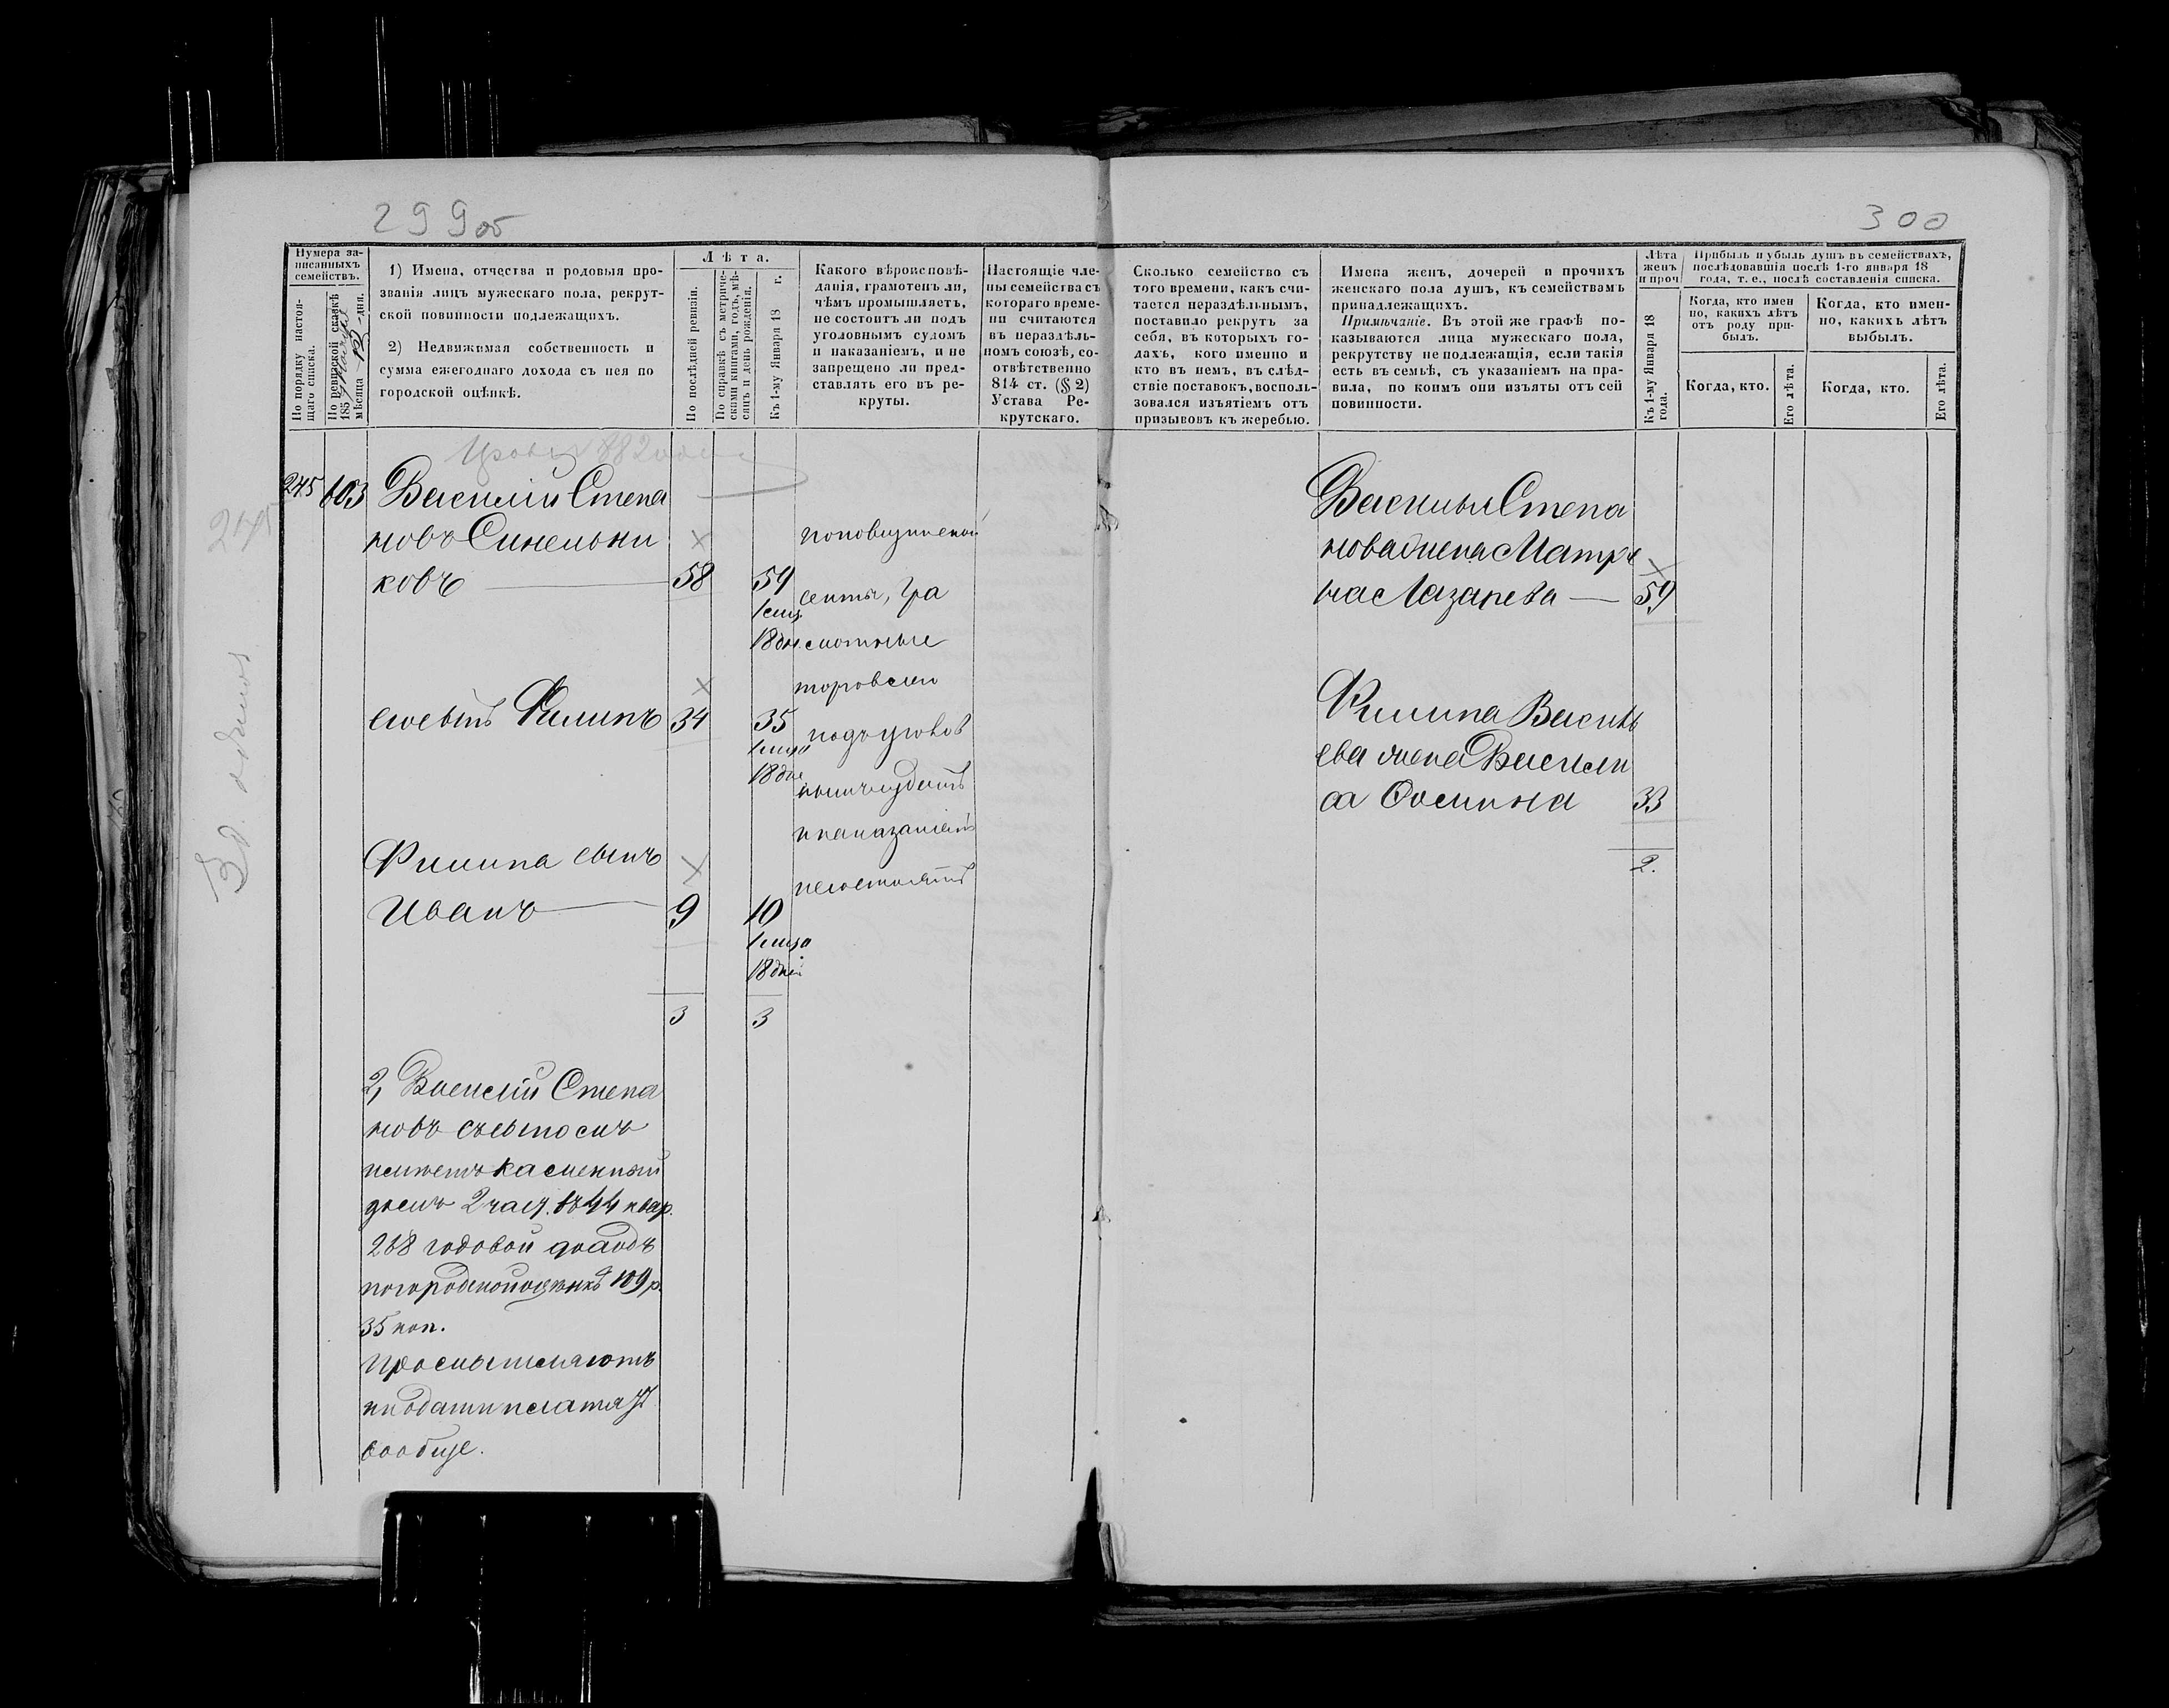 299об
300
Нумера за-
писанныхъ
семействъ.
По порядку настоя-
щаго списка.
По ревизской сказкѣ
185
мѣсяца дня.
1) Имена, отчества и родовыя про-
званія лицъ мужескаго пола, рекрут-
ской повинности подлежащихъ.
2) Недвижимая собственность и
сумма ежегоднаго дохода съ нея по
городской оцѣнкѣ.
Лѣта.
По послѣдней ревизіи.
По справкѣ съ метриче-
скими книгами, годъ, мѣ-
сяцъ и день рожденія.
Къ 1-му Января 18 г.
Какого вѣроисповѣ-
данія, грамотенъ ли,
чѣмъ промышляетъ,
не состоитъ ли подъ
уголовнымъ судомъ
и наказаніемъ, и не
запрещено ли пред-
ставлять его въ ре-
круты.
Настоящіе чле-
ны семейства съ
котораго време-
ни считаются
въ нераздѣль-
номъ союзѣ, со-
отвѣтственно
814 ст. (§ 2)
Устава Ре-
крутскаго.
Сколько семейство съ
того времени, какъ счи-
тается нераздѣльнымъ,
поставило рекрутъ за
себя, въ которыхъ го-
дахъ, кого именно и
кто въ немъ, въ слѣд-
ствіе поставокъ, восполь-
зовался изъятіемъ отъ
призывовъ къ жеребью.
Имена женъ, дочерей и прочихъ
женскаго пола душъ, къ семействамъ
принадлежащихъ.
Примѣчаніе. Въ этой же графѣ по-
казываются лица мужескаго пола,
рекрутству не подлежащія, если такія
есть въ семьѣ, съ указаніемъ на пра-
вила, по коимъ они изъяты отъ сей
повинности.
Лѣта
женъ
и проч
Къ 1-му Января 18
года.
Прибыль и убыль душъ въ семействахъ,
послѣдовавшія послѣ 1-го января 18
года, т. е., послѣ составленія списка.
Когда, кто имен
но, какихъ лѣтъ
отъ роду при-
былъ.
Когда, кто имен-
но, какихъ лѣтъ
выбылъ.
Когда, кто.
Его лѣта.
Когда, кто.
Его лѣта.
245 103 Василій Степа
новъ Синельни
ковъ 58 59
18 дн.
поповщинской
секты, гра
мотные
торовлею
подъ уголов
нымъ судомъ
и наказаніемъ
не состоятъ
245
сынъ Филипъ 34 35
18 дне
Филипа сынъ
Иванъ 9 10
18 дней
3 3
2, Василій Степа
новъ съ сыномъ
имѣетъ каменный
домъ 2 част. въ 44 квар.
268 годовой доходъ
по городской оцѣнкѣ 109 р.
35 коп.
Промышляютъ
и подати платятъ
вообще.
Василья Степа
нова жена Матре
на Лазарева 59
Филипа Василь
ева жена Васили
са Осипова 33
2.